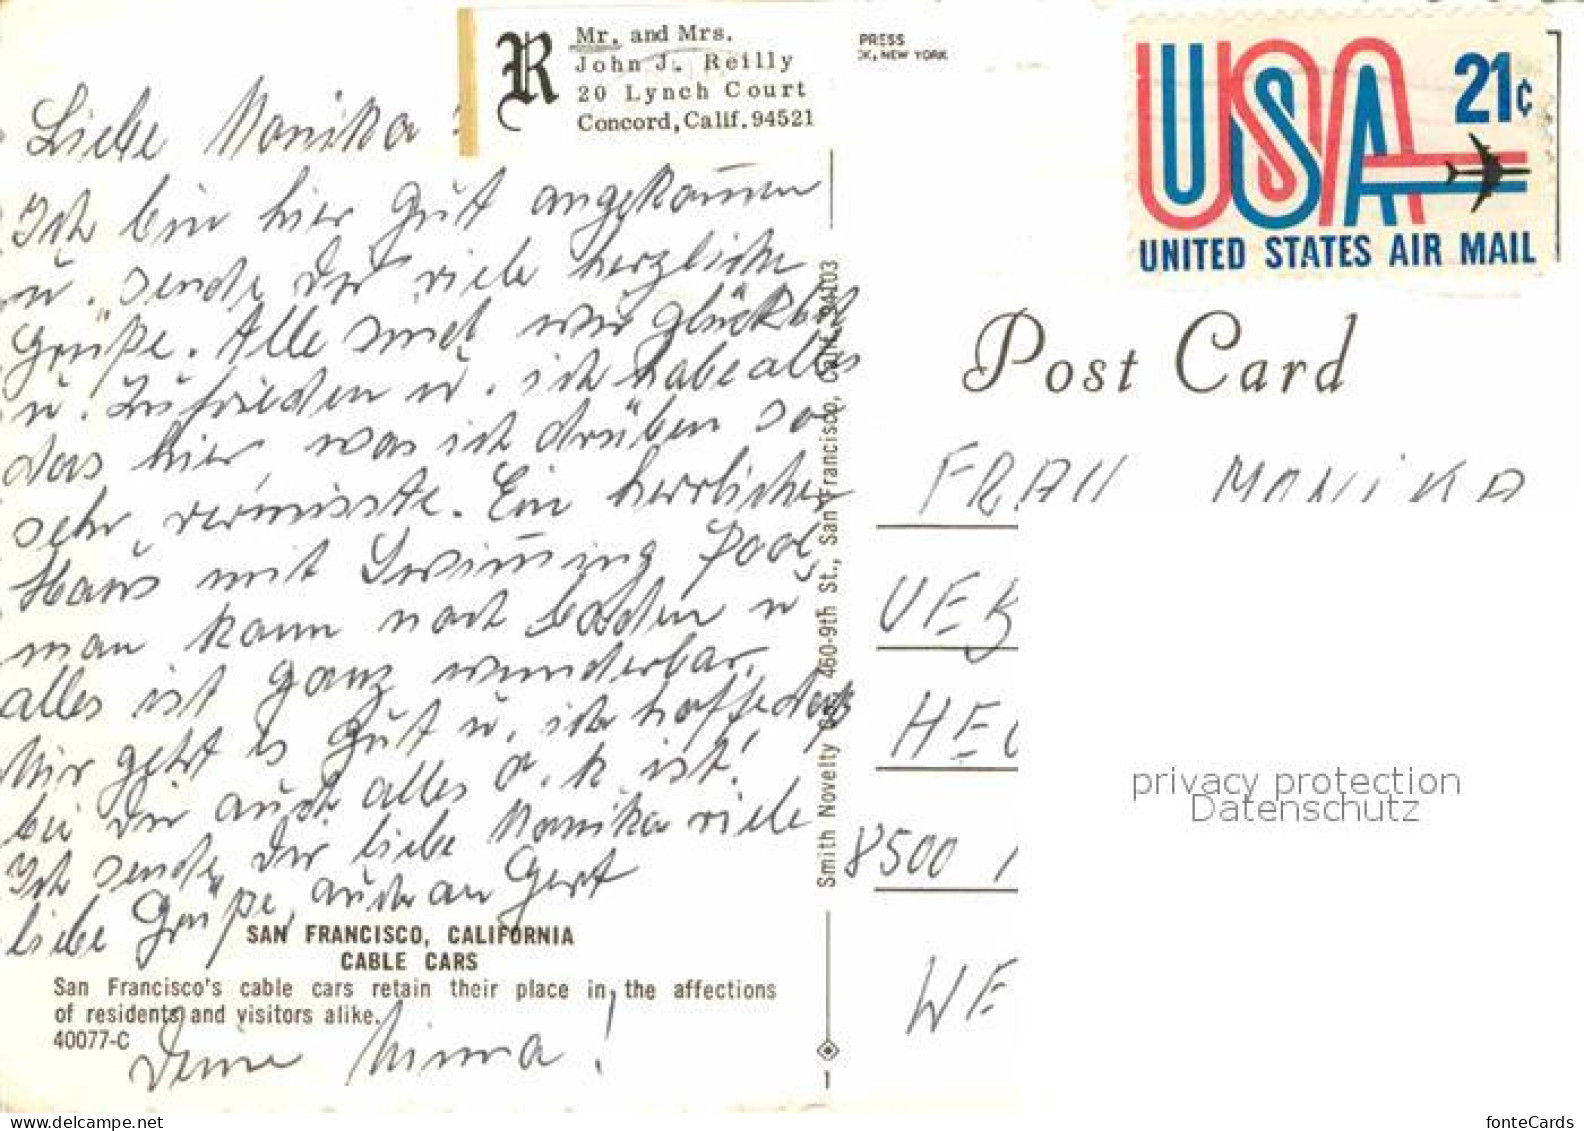 R
Mr. and Mrs.
John J. Reilly
20 Lynch Court
Concord, Calif. 94521
PRESS
K, NEW YORK
USA 21c
UNITED STATES AIR MAIL
Post Card
Liebe Monika :
Ich bin hier Gut angekom̄en
u. sende Dir viele herzliche
Grüße. Alle sind wir glücklich
u. zufrieden u. ich habe alles
das hier was ich drüben so
sehr vermisste. Ein herrliches
Haus mit Swim̄ing Pool,
man kann noch baden u
alles ist ganz wunderbar.
Mir geht es Gut u. ich hoffe daß
bei Dir auch alles o.k ist!
Ich sende Dir liebe Monika viele
liebe Grüße, auch an Gert
Deine Minna!
SAN FRANCISCO, CALIFORNIA
CABLE CARS
San Francisco's cable cars retain their place in the affections
of residents and visitors alike.
40077-C
Smith Novelty Co., 460-9th St., San Francisco, Calif. 94103
1
FRAU MONIKA
8500
WE
privacy protection
Datenschutz
www.delcampe.net
fonteCards